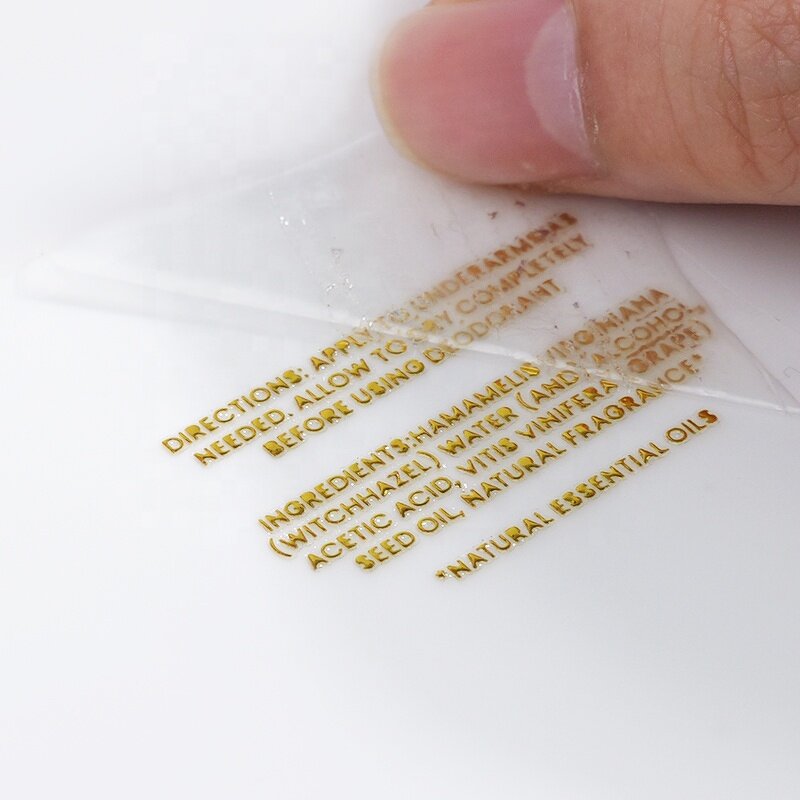 DIRECTIONS: APPLY TO UNDERARMS AS
NEEDED. ALLOW TO DRY COMPLETELY
BEFORE USING DEODORANT.
INGREDIENTS:HAMAMELIS VIRGINIANA
(WITCHHAZEL) WATER (AND) ALCOHOL,
ACETIC ACID, VITIS VINIFERA (GRAPE)
SEED OIL, NATURAL FRAGRANCE*
*NATURAL ESSENTIAL OILS